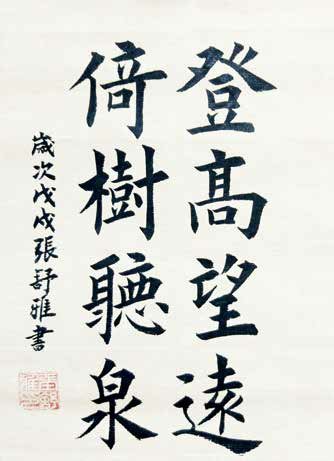 登高望遠
倚樹聽泉
歲次戊戌張舒雅書